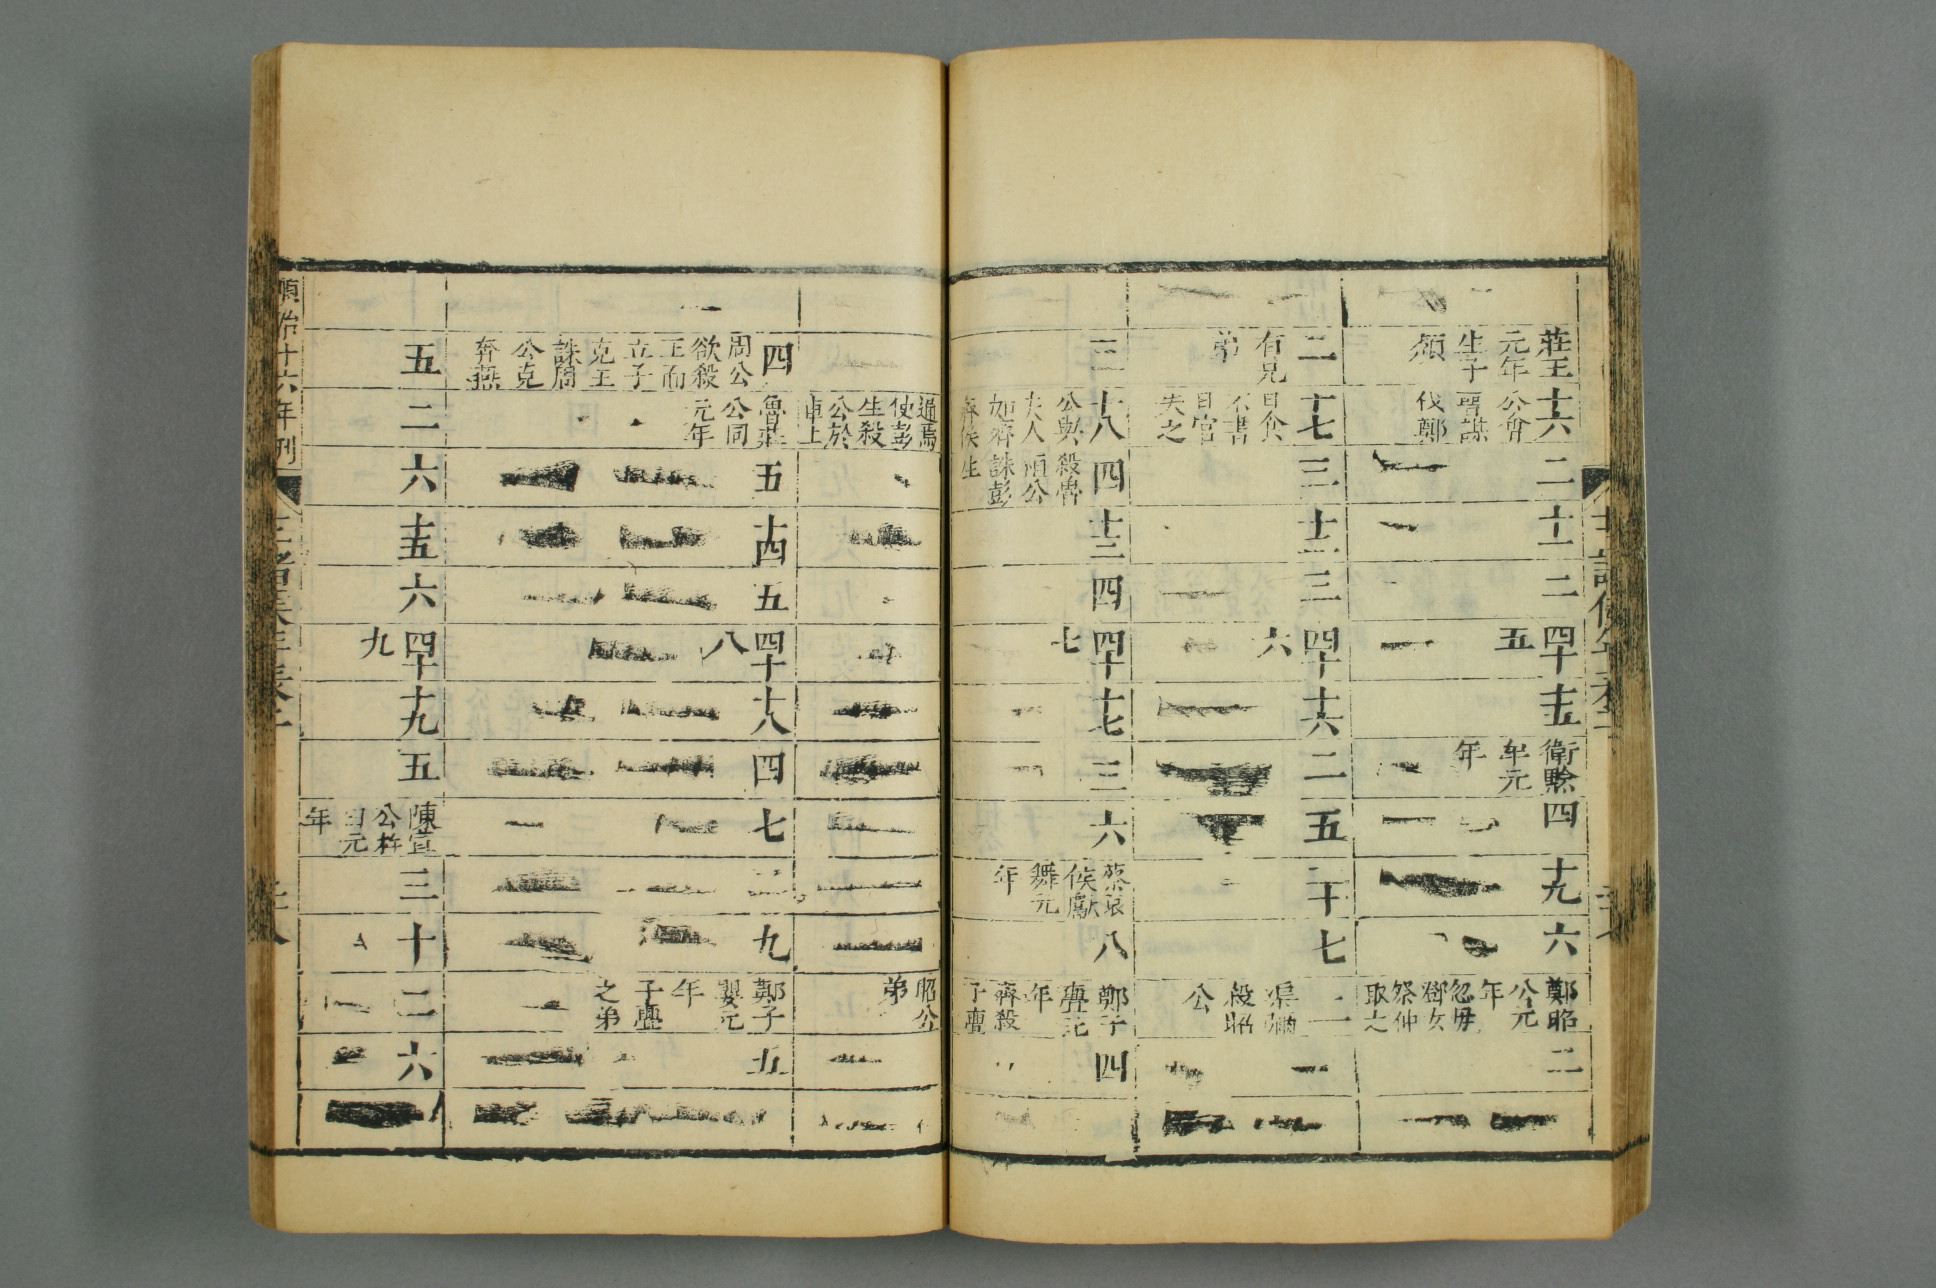 莊王
元年
生子
頹
十六
公會
曹謀
伐鄭
二
十一
二
四十
五
十五
衛黔
牟元
年
四
十九
六
鄭昭
公元
年
忽母
鄧女
祭仲
取之
二
二
有兄
弟
十七
日食
不書
日官
失之
三
十二
三
四十
六
十六
二
五
二十
七
二
渠彌
殺昭
公
三
十八
公與
夫人
如齊
齊侯
四
殺魯
桓公
誅彭
生
十三
四
四十
七
十七
三
六
蔡哀
侯獻
舞元
年
八
鄭子
亹元
年
齊殺
子亹
四
通焉
使彭
生殺
公於
車上
昭公
弟
四
周公
欲殺
王而
立子
克王
誅周
公克
奔燕
魯莊
公同
元年
五
十四
五
四十
八
十八
四
七
二
九
鄭子
嬰元
年
子亹
之弟
五
五
二
六
十五
六
四十
九
十九
五
陳宣
公杵
臼元
年
三
十
二
六
順治十六年刊